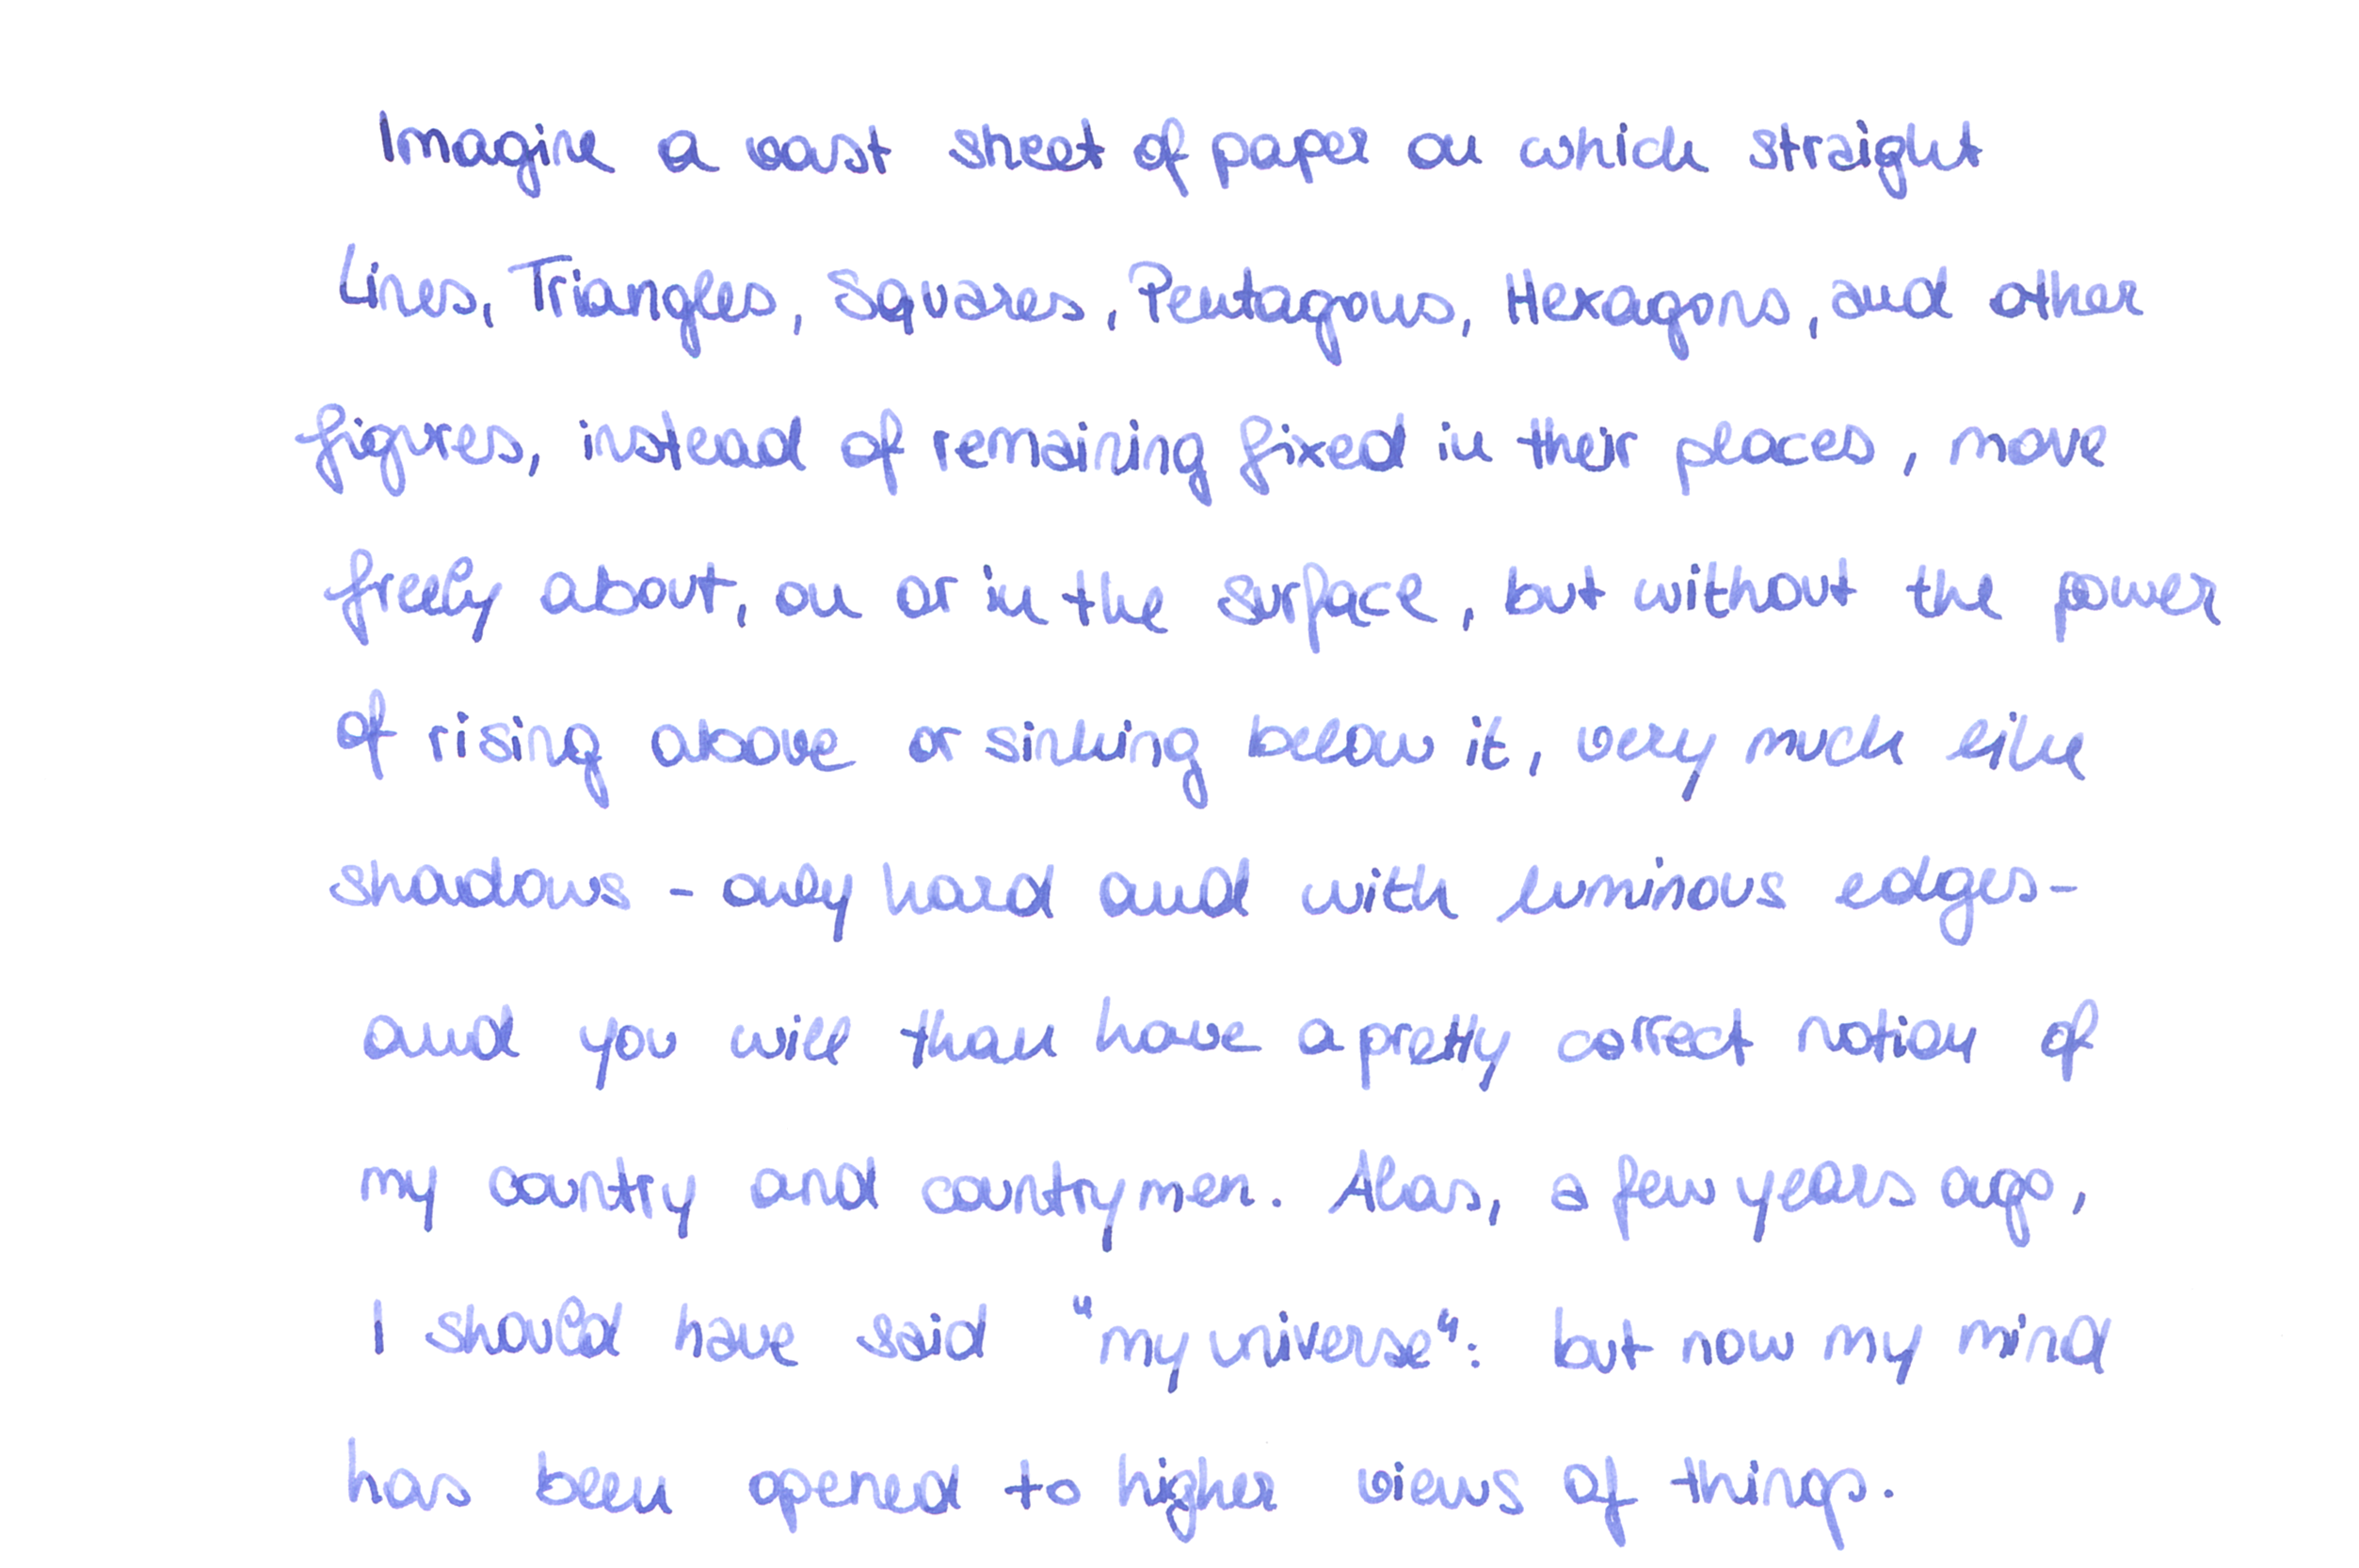 Imagine a vast sheet of paper on which straight
Lines, Triangles, Squares, Pentagons, Hexagons, and other
figures, instead of remaining fixed in their places, move
freely about, on or in the surface, but without the power
of rising above or sinking below it, very much like
shadows - only hard and with luminous edges-
and you will than have a pretty correct notion of
my country and countrymen. Alas, a few years ago,
I should have said "my universe": but now my mind
has been opened to higher views of things.